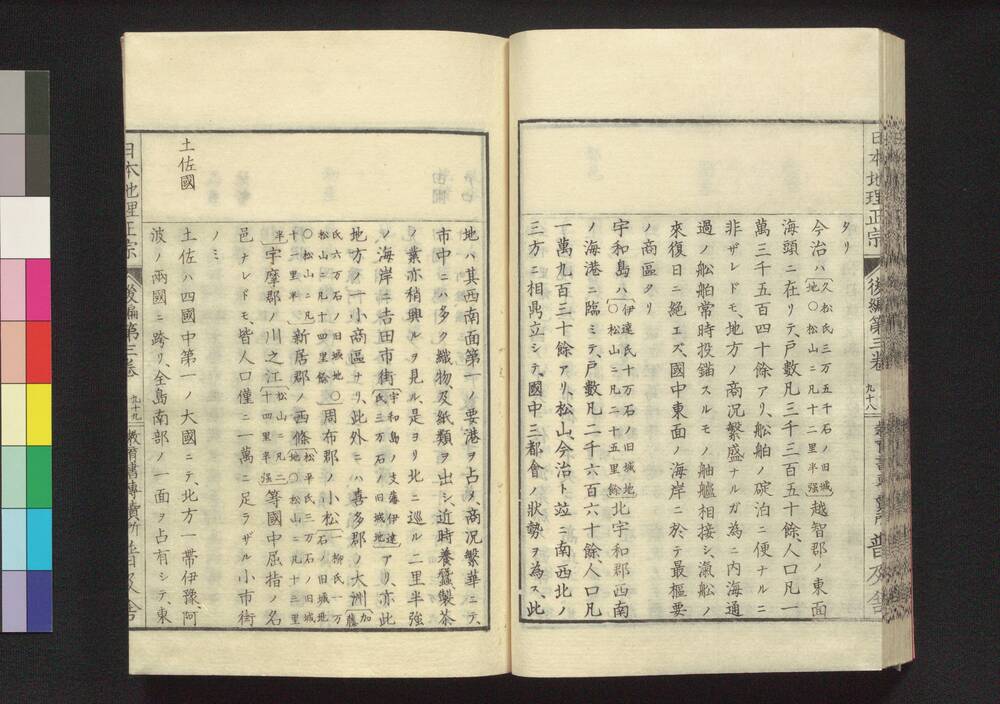 日本地理正宗 後編第三卷 九十八 普及舍
タリ
今治ハ(久松氏三万五千石ノ旧城地〇松山ニ凡十二里半强)越智郡ノ東面
海頭ニ在リテ、戸數凡三千三百五十餘、人口凡一
萬三千五百四十餘アリ、舩舶ノ碇泊ニ便ナルニ
非ザレドモ、地方ノ商况繫盛ナルガ為ニ内海通
過ノ舩舶常時投錨スルモノ舳艫相接シ、漁舩ノ
來復日ニ絶エズ、國中東面ノ海岸ニ於テ最樞要
ノ商區タリ
宇和島ハ(伊達氏十万石ノ旧城地〇松山ニ凡二十五里餘)北宇和郡西南
ノ海港ニ臨ミテ、戸數凡二千六百六十餘人口凡
一萬九百三十餘アリ、松山、今治ト竝ニ南西北ノ
三方ニ相鼎立シテ、國中三都會ノ狀勢ヲ為ス、此
地ハ其西南面第一ノ要港ヲ占メ、商况繫華ニテ、
市中ニハ多ク織物、及紙類ヲ出シ、近時養蠶、製茶
ノ業亦稍興ルヲ見ル、是ヨリ北ニ巡ル二里半强
ノ海岸ニ吉田市街(宇和島ノ支藩伊達氏三万石ノ旧城地)アリ、亦此
地方ノ一小商區ナリ、此外ニハ喜多郡ノ大洲(加藤
氏六万石ノ旧城地〇松山ニ凡十四里餘)周布郡ノ小松(一柳氏一万石ノ旧城地
〇松山ニ凡十一里半)新居郡ノ西條(松平氏三万石ノ旧城地〇松山ニ凡十三里
半)宇摩郡ノ川之江(松山ニ凡二十四里半强)等國中屈指ノ名
邑ナレドモ皆人口僅ニ一萬ニ足ラザル小市街
ノミ
土佐國
土佐ハ四國中第一ノ大國ニテ、北方一帶伊豫、阿
波ノ兩國ニ跨リ、全島南部ノ一面ヲ占有シテ、東
日本地理正宗 後編第三卷 九十九 教育書專賣所 普及舍